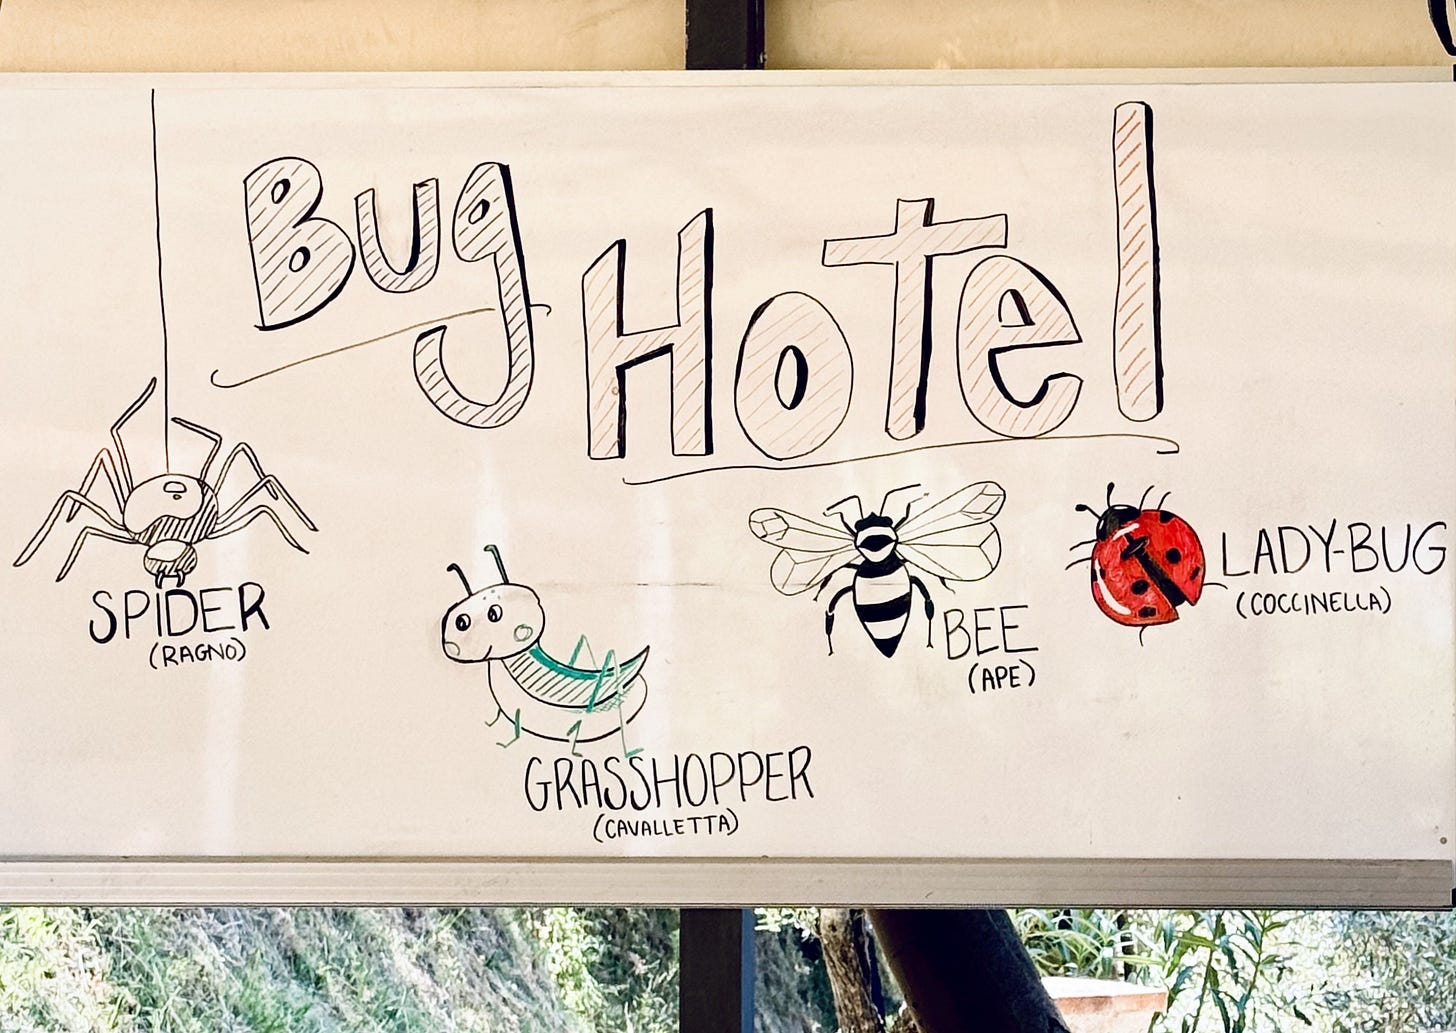 Bug Hotel
SPIDER
(RAGNO)
GRASSHOPPER
(CAVALLETTA)
BEE
(APE)
LADY-BUG
(COCCINELLA)